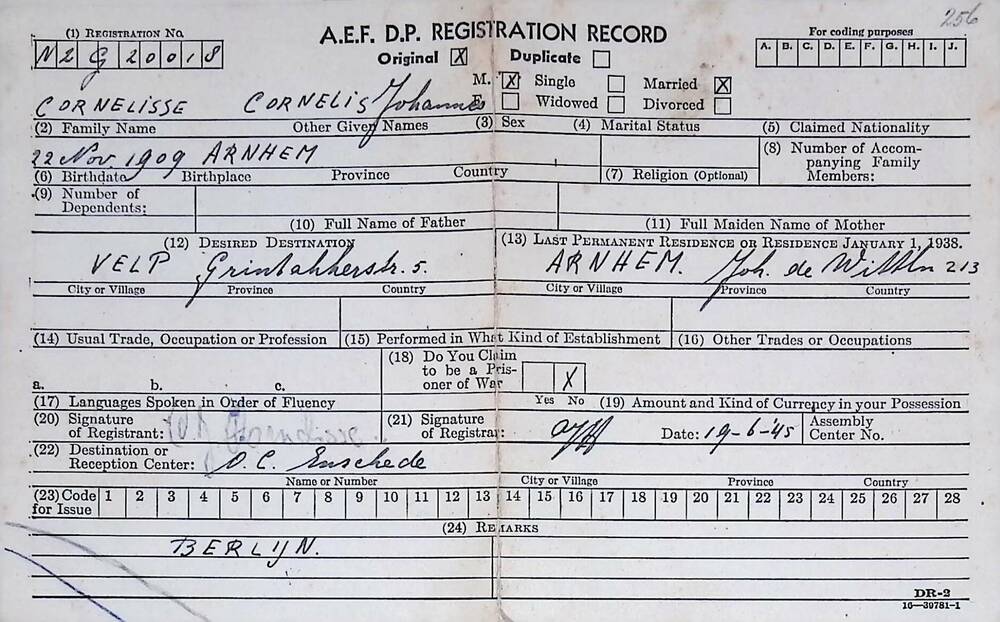 256
(1) REGISTRATION NO.
A.E.F. D.P. REGISTRATION RECORD
For coding purposes
N2G20018
Original X Duplicate
A. B. C. D. E. F. G. H. I. J.
M. X Single Married X
CORNELISSE CORNELIS Johannes F. Widowed Divorced
(2) Family Name Other Given Names (3) Sex (4) Marital Status (5) Claimed Nationality
22 Nov 1909 ARNHEM
(8) Number of Accom-
panying Family
Members:
(6) Birthdate Birthplace Province Country (7) Religion (Optional)
(9) Number of
Dependents:
(10) Full Name of Father (11) Full Maiden Name of Mother
(12) DESIRED DESTINATION (13) LAST PERMANENT RESIDENCE OR RESIDENCE JANUARY 1, 1938.
VELP 5. ARNHEM. Joh. de 213
City or Village Province Country City or Village Province Country
(14) Usual Trade, Occupation or Profession (15) Performed in What Kind of Establishment (16) Other Trades or Occupations
(18) Do You Claim
to be a Pris-
oner of War X
a. b. c. Yes No
(17) Languages Spoken in Order of Fluency (19) Amount and Kind of Currency in your Possession
(20) Signature
of Registrant:
(21) Signature
of Registrar: Date: 19-6-45
Assembly
Center No.
(22) Destination or
Reception Center: D.C. Enschede
Name or Number City or Village Province Country
(23) Code
for Issue
1 2 3 4 5 6 7 8 9 10 11 12 13 14 15 16 17 18 19 20 21 22 23 24 25 26 27 28
(24) REMARKS
BERLIJN.
DR-2
16—39781-1